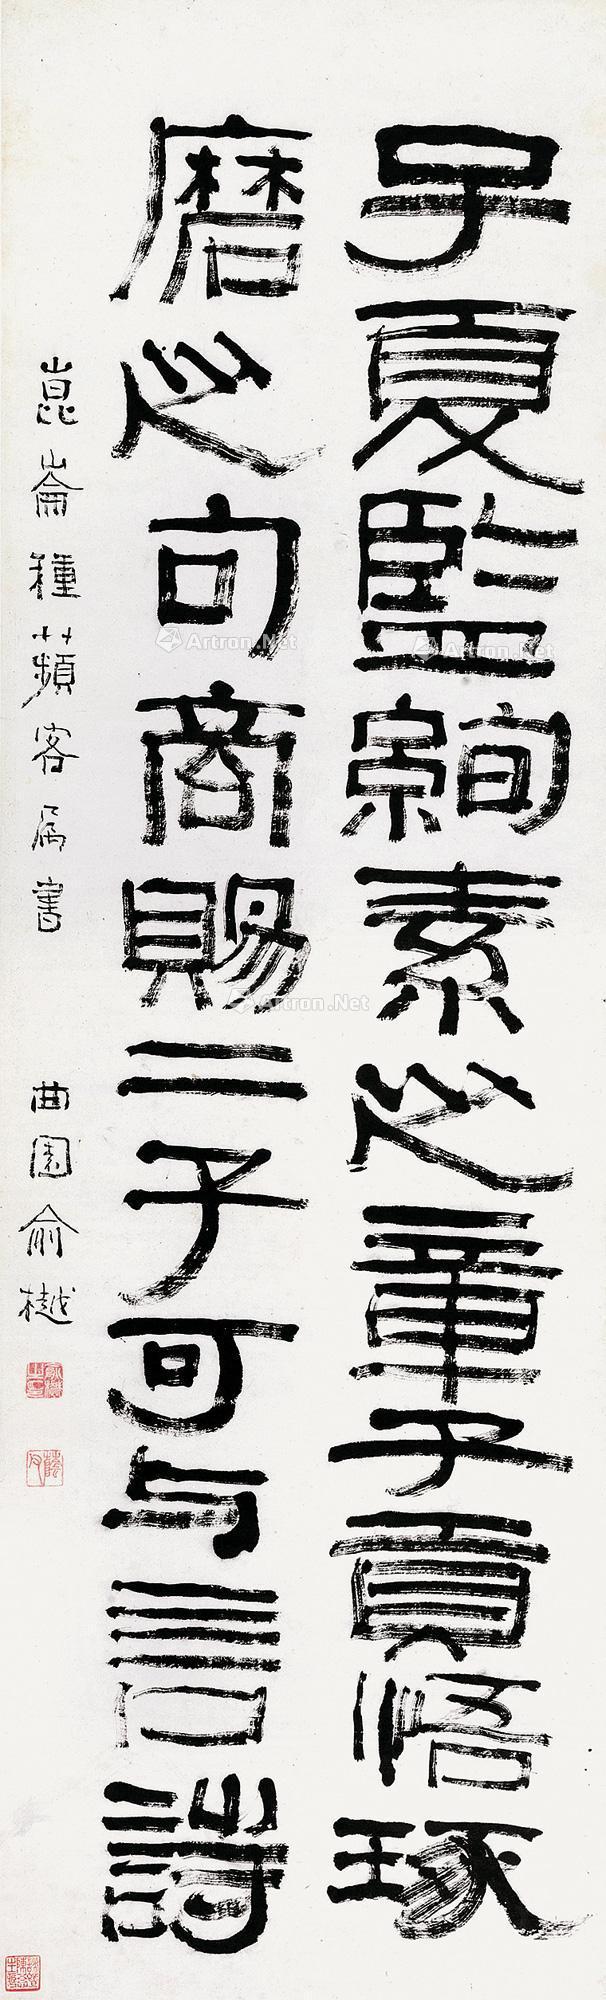 子夏監絢素之章子貢悟琢
磨之句商賜二子可与言詩
崑崙種蘋客属書 曲園俞樾
Artron.Net
Artron.Net
Artron.Net